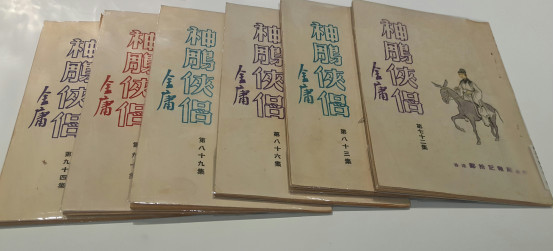 神鵰俠侶
金庸
第九十四集
神鵰俠侶
金庸
神鵰俠侶
金庸
第八十九集
神鵰俠侶
金庸
第八十六集
神鵰俠侶
金庸
第八十三集
神鵰俠侶
金庸
第七十二集
鄺拾記報局